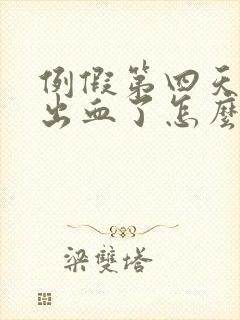 例假第四天
出血了怎麼
梁雙塔